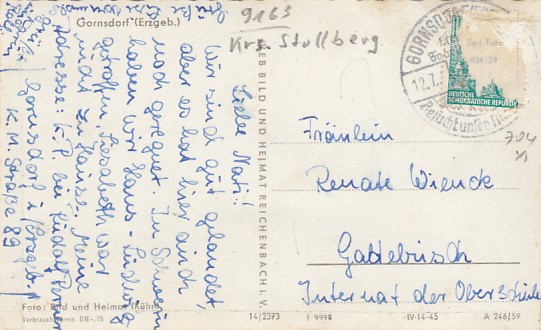 Gornsdorf (Erzgeb.)
9163
Krs. Stollberg
Liebe Nati!!
Wir sind gut gelandet,
aber es hat hier auch
noch geregnet. In Schwerin
haben wir Hans-
getroffen, Elisabeth war
nicht zu Hause. Meine
Adresse: R. P. bei
Gornsdorf i/Erzgeb.
K. M. Straße 89
VEB BILD UND HEIMAT REICHENBACH I. V.
GORNSDORF
12.7.
DEUTSCHE
DEMOKRATISCHE REPUBLIK
Fräulein
Renate Wienck
Gadebusch
Internat der Oberschule
Foto: Bild und Heimat (Kühn)
Verbraucherpreis DM -,15
14/2373 F 9998 IV-14-45 A 246/59